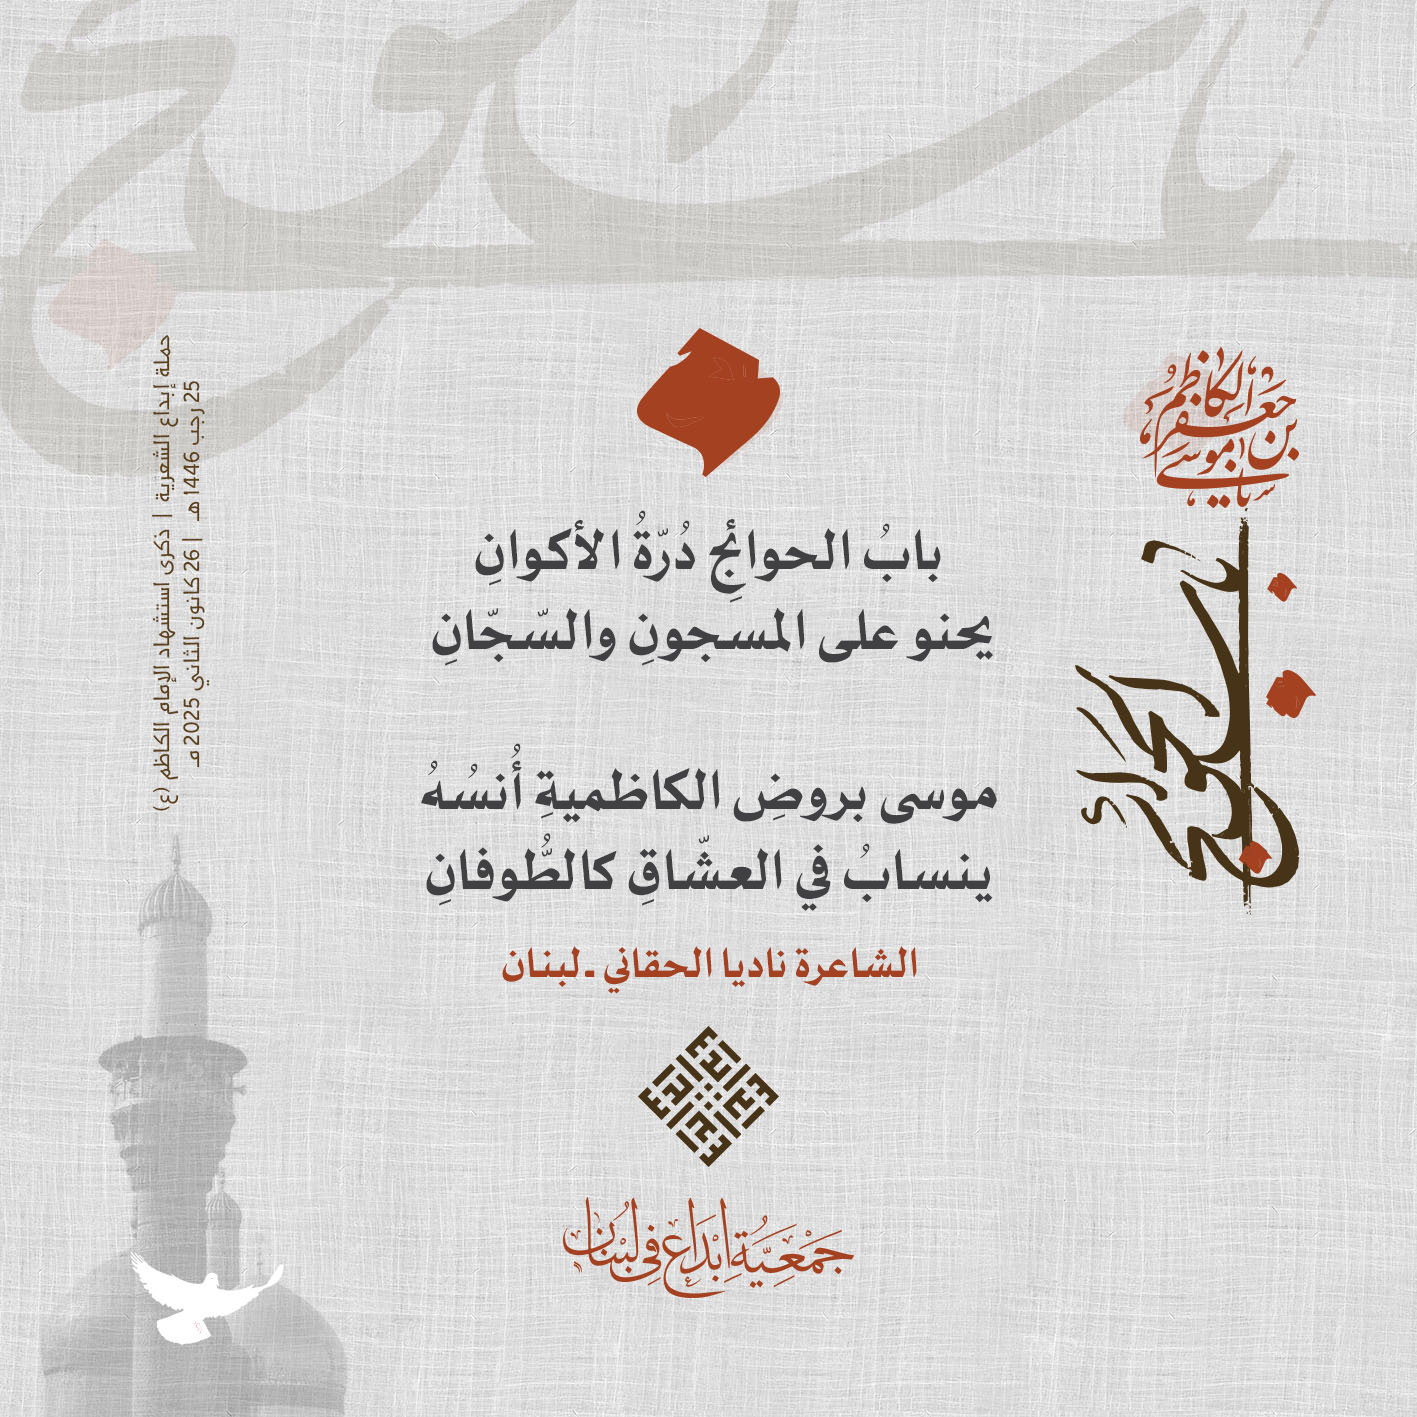 يا موسى بن جعفر الكاظم
باب الحوائج
بابُ الحوائجِ دُرّةُ الأكوانِ
يحنو على المسجونِ والسّجّانِ
موسى بروضِ الكاظميةِ أُنسُهُ
ينسابُ في العشّاقِ كالطُّوفانِ
الشاعرة ناديا الحقاني ـ لبنان
جَمْعِيَّةُ إِبْدَاع فِي لُبْنَان
حملة إبداع الشعرية | ذكرى استشهاد الإمام الكاظم (ع)
25 رجب 1446 هـ | 26 كانون الثاني 2025 مـ